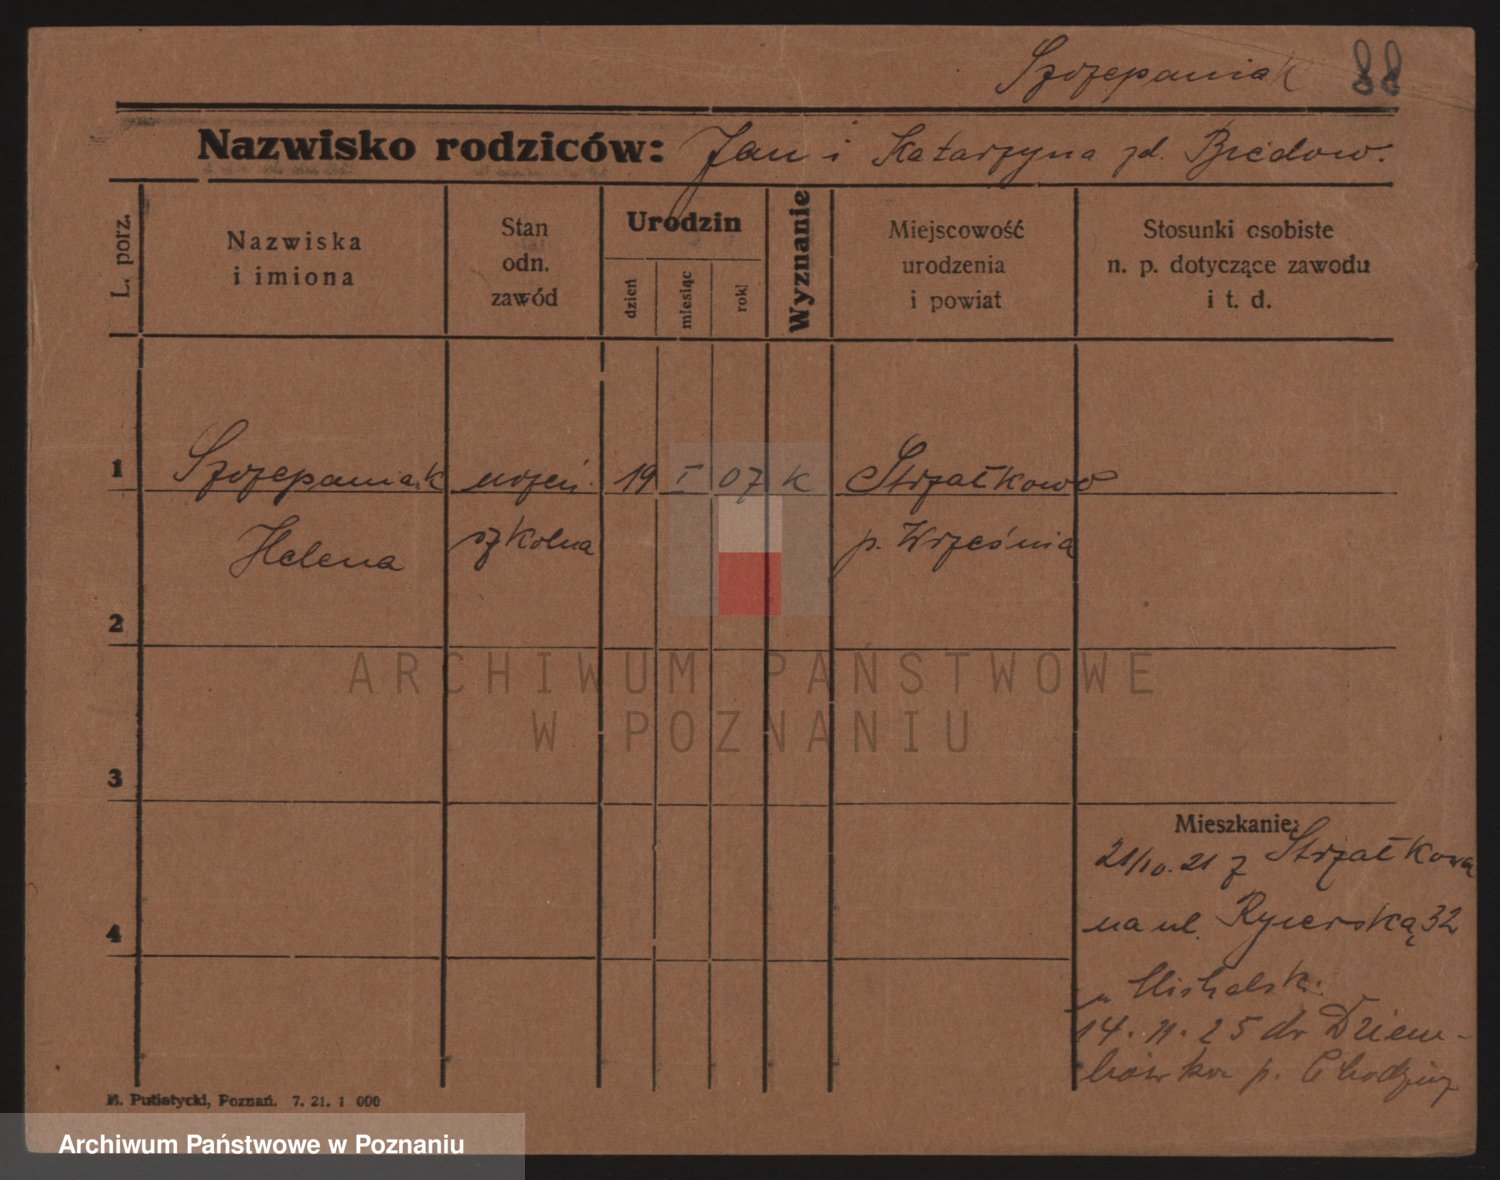 Szczepaniak 88
Nazwisko rodziców: Jan i Katarzyna zd. Bredow.
L. porz.
Nazwiska
i imiona
Stan
odn.
zawód
Urodzin
dzień
miesiąc
rok
Wyznanie
Miejscowość
urodzenia
i powiat
Stosunki osobiste
n. p. dotyczące zawodu
i t. d.
1 Szczepaniak uczeń. 19 I 07 k Strzałkowo
Helena szkolna p. Września
2
3
4
Mieszkanie:
21/10.21 z Strzałkowa
na ul. Rycerską 32
14.11.25 do Dziem-
bówka p. Chodzież
M. Putiatycki, Poznań. 7. 21. 1 000
ARCHIWUM PAŃSTWOWE
W POZNANIU
Archiwum Państwowe w Poznaniu